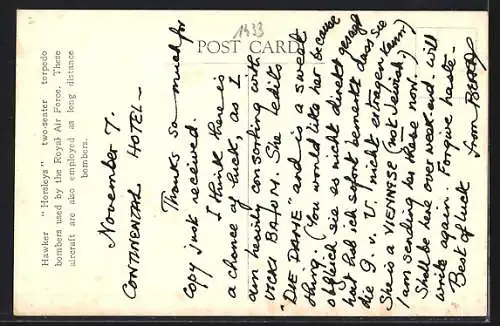 1933
POST CARD
Hawker "Horsleys" two-seater torpedo
bombers used by the Royal Air Force. These
aircraft are also employed as long distance
bombers.
November 7.
CONTINENTAL HOTEL—
Thanks so much for
copy just received.
I think there is
a chance of luck, as I
am heavily consorting with
VICKI BAUM. She edits
"DIE DAME" and is a sweet
thing. (You would like her because
obgleich sie es nicht direkt gesagt
hat hab ich sofort bemerkt dass sie
die G. v. U. nicht ertragen kann)
She is a VIENNESE (not Jewish!)
I am sending her these now.
Shall be here over weekend. will
write again. Forgive haste—
Best of luck
from